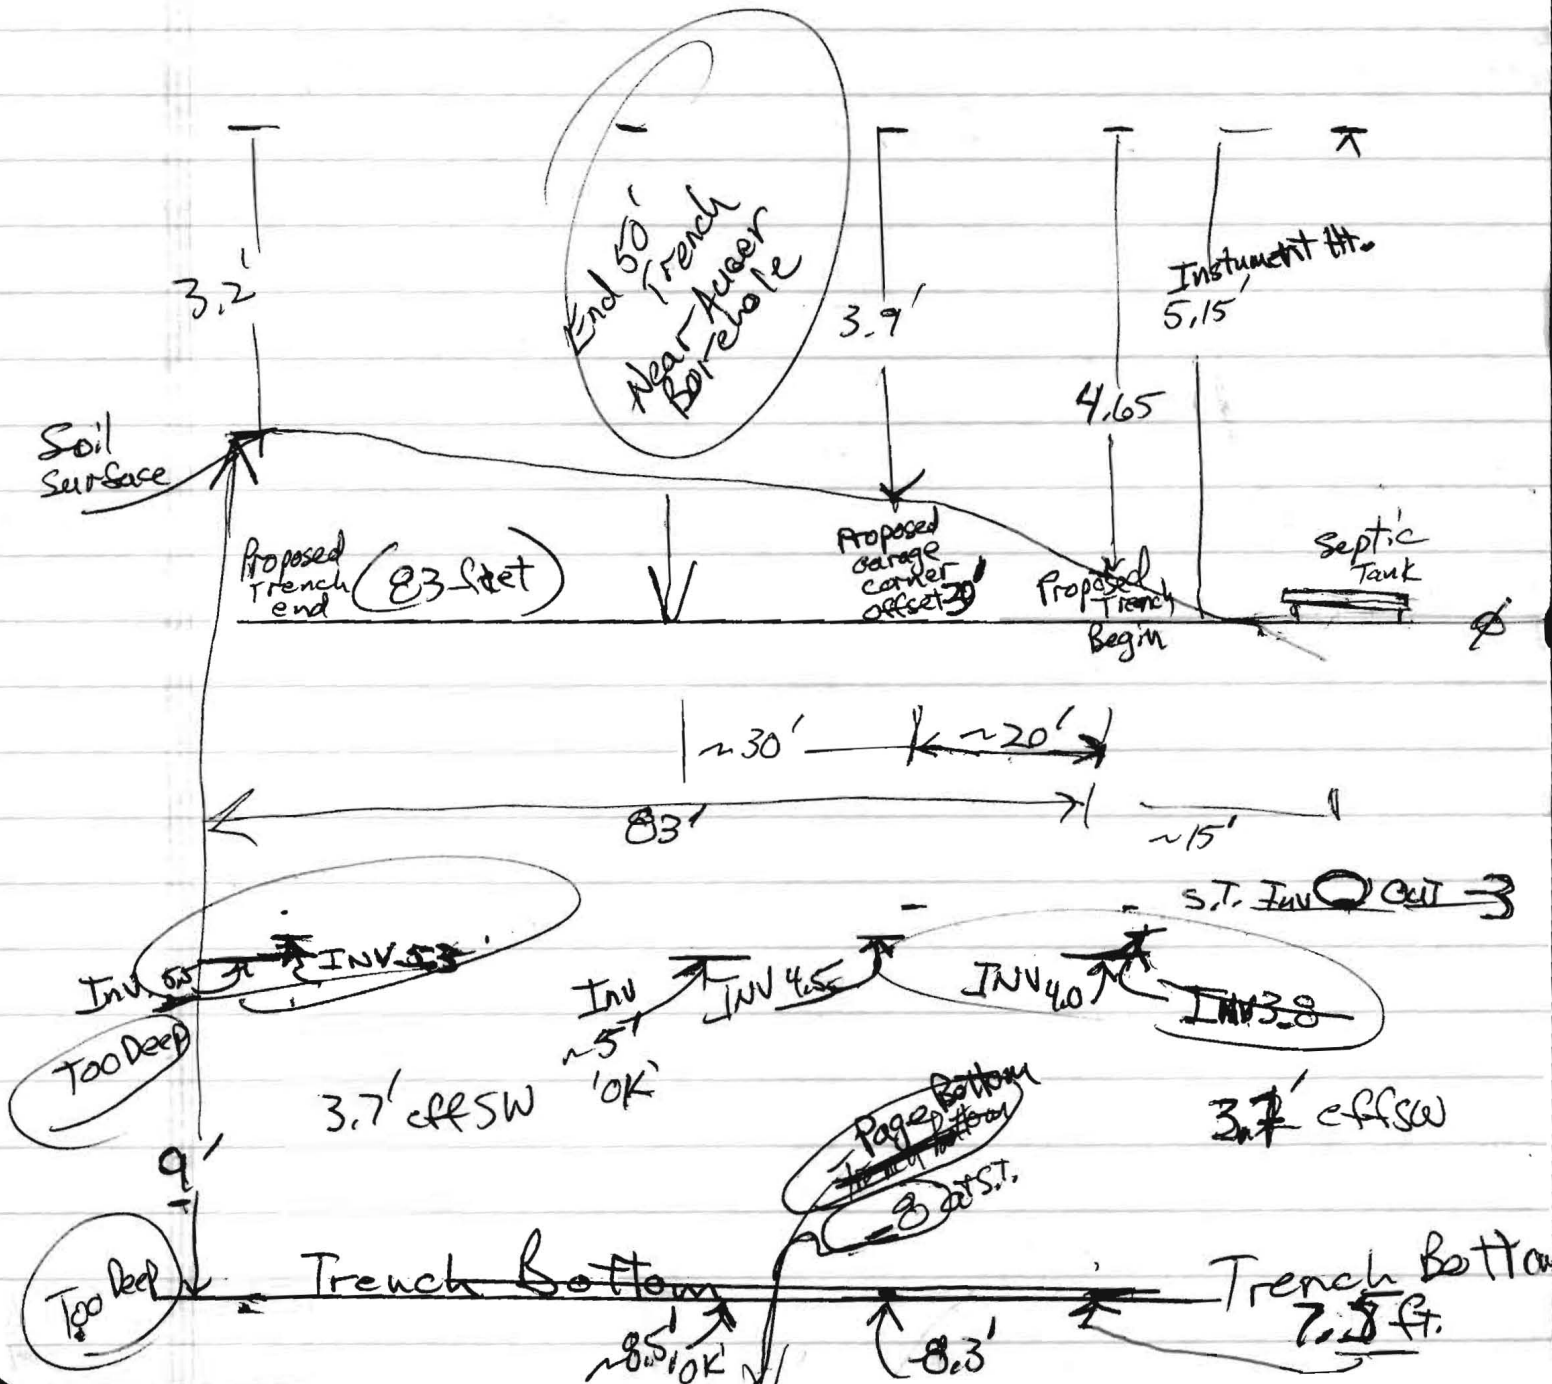 End 50'
Trench
Near Auger
Borehole
3.2'
3.9'
Instument Ht.
5.15'
4.65
Soil
Surface
Proposed
Trench
end
(83 feet)
Proposed
Garage
corner
offset 30'
Proposed
Trench
Begin
Septic
Tank
Ø
~30'
~20'
83'
~15'
S.T. Inv Out -3
Inv 5.5
INV 5.3
Inv
~5'
'OK'
INV 4.5
INV 4.0
INV 3.8
Too Deep
3.7' eff SW
eff SW
Page Bottom
-8 at S.T.
9'
Too Deep
Trench Bottom
Trench Bottom
ft.
~8.5'
'OK'
8.3'